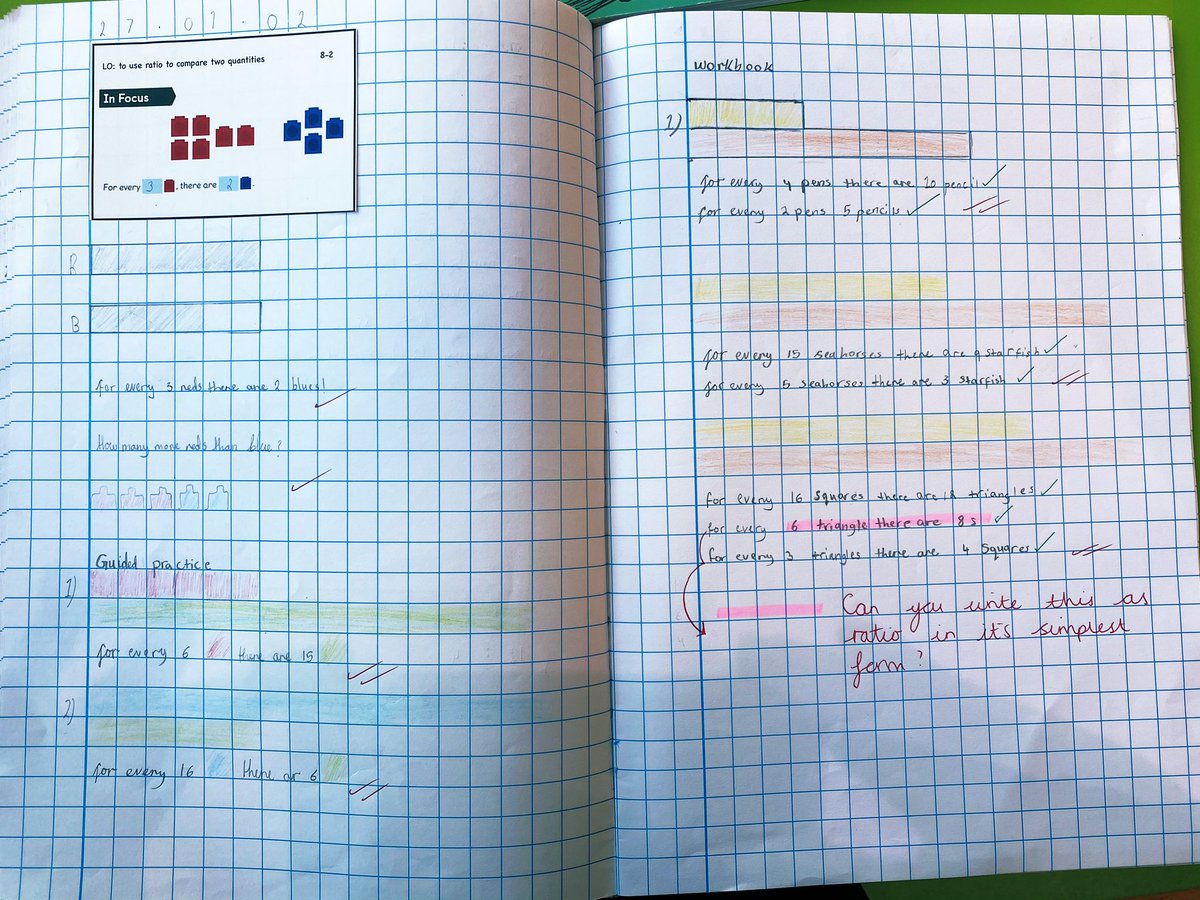 27.01.02
LO: to use ratio to compare two quantities 8-2
In Focus
For every 3 , there are 2 .
R
B
for every 3 reds there are 2 blues!
How many more reds than blue?
Guided practice
1)
for every 6 there are 15
2)
for every 16 there ar 6
workbook
1)
for every 4 pens there are 10 pencil
for every 2 pens 5 pencils
for every 15 seahorses there are 9 starfish
for every 5 seahorses there are 3 starfish
for every 16 squares there are 12 triangles
for every 6 triangle there are 8 s
for every 3 triangles there are 4 Squares
Can you write this as
ratio in it's simplest
form?